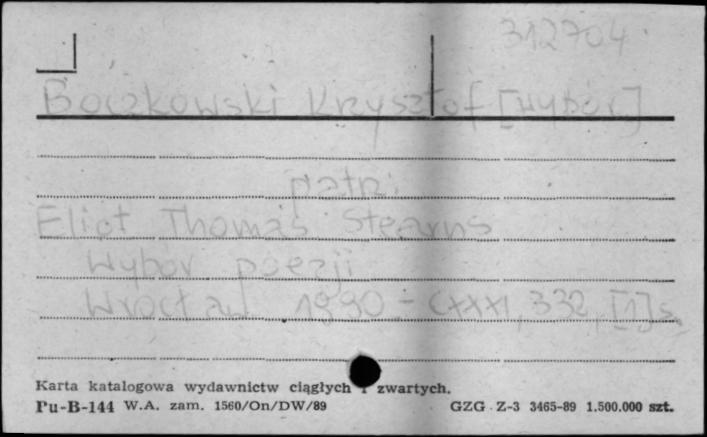 312704
Boczkowski Krzysztof [Wybór]
patrz:
Eliot Thomas Stearns
Wybór poezji
Wrocław 1990 - CXXXI, 332, [1] s.
Karta katalogowa wydawnictw ciągłych i zwartych.
Pu-B-144 W.A. zam. 1560/On/DW/89 GZG Z-3 3465-89 1.500.000 szt.